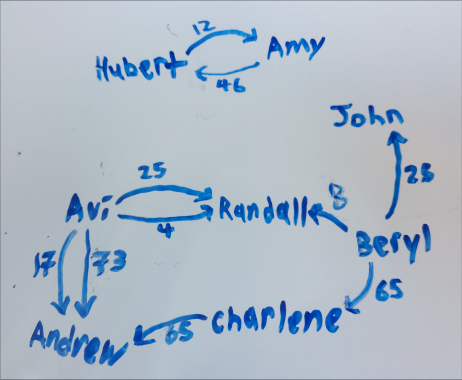 12
Hubert Amy
46
John
25
25
Avi Randall 8
4
Beryl
17 73
65
Charlene
Andrew 65